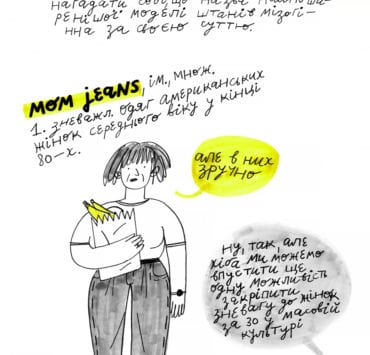 нагадати собі, що назва найпоши-
реніshої моделі штанів мізогі-
нна за своєю суттю.
mom jeans, ім., множ.
1. зневажл. одяг американських
жінок середнього віку у кінці
80-х.
але в них
зручно
ну, так, але
хіба ми можемо
впустити ще
одну можливість
закріпити
зневагу до жінок
за 30 у масовій
культурі